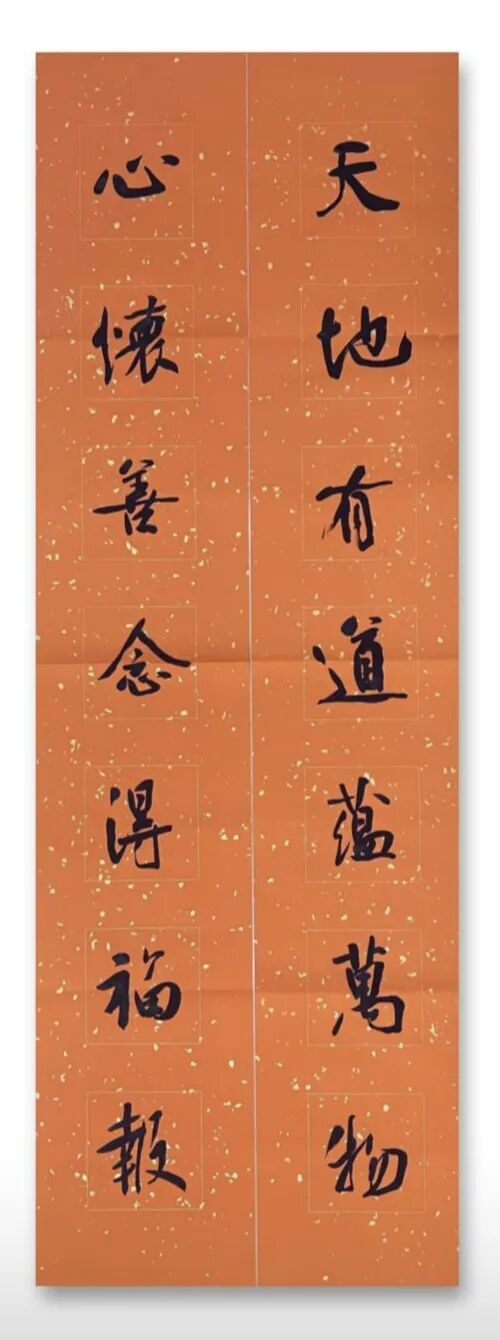 天地有道蕴萬物
心懷善念得福報